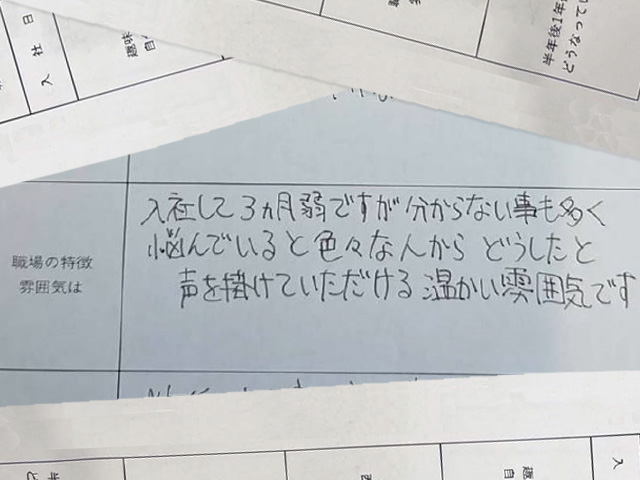 入社日
趣味
自
半年後1年
どうなってい
職場の特徴
雰囲気は
入社して3ヵ月弱ですが分からない事も多く
悩んでいると色々な人からどうしたと
声を掛けていただける温かい雰囲気です
趣
自
入